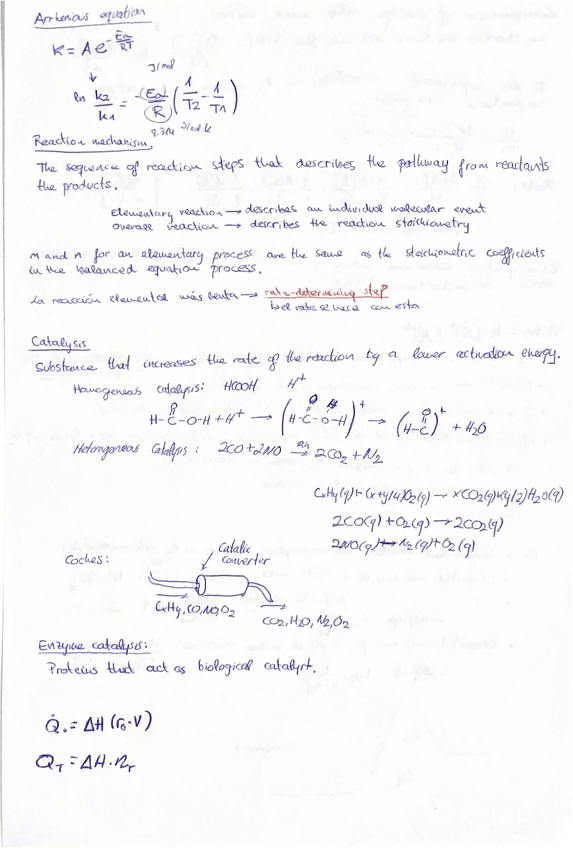 Arrhenius equation
K = A e^-Ea/RT
J/mol
ln k2/k1 = -(Ea/R) (1/T2 - 1/T1)
8.314 J/mol K
Reaction mechanism,
The sequence of reaction steps that describes the pathway from reactants
the products.
Elementary reaction → describes an individual molecular event
overage reaction → describes the reaction stoichiometry
m and n for an elementary process are the same as the stoichiometric coefficients
in the balanced equation process.
La reacción elemental más lenta → rate-determining step
el rate se hace con esta
Catalysis
Substance that increases the rate of the reaction by a lower activation energy.
Homogeneous catalysis: HCOOH H+
H-C(=O)-O-H + H+ → (H-C(=O)-O(H)-H)+ → (H-C=O)+ + H2O
Heterogeneous Catalysis: 2CO + 2NO → 2CO2 + N2
CxHy(g) + (x+y/4)O2(g) → xCO2(g)+(y/2)H2O(g)
2CO(g) + O2(g) → 2CO2(g)
2NO(g) → N2(g) + O2(g)
Coches:
Catalic
converter
CxHy, CO, NO, O2
CO2, H2O, N2, O2
Enzyme catalysis:
Proteins that act as biological catalyst.
Q̇. = ΔH (r0·V)
QT = ΔH·nr